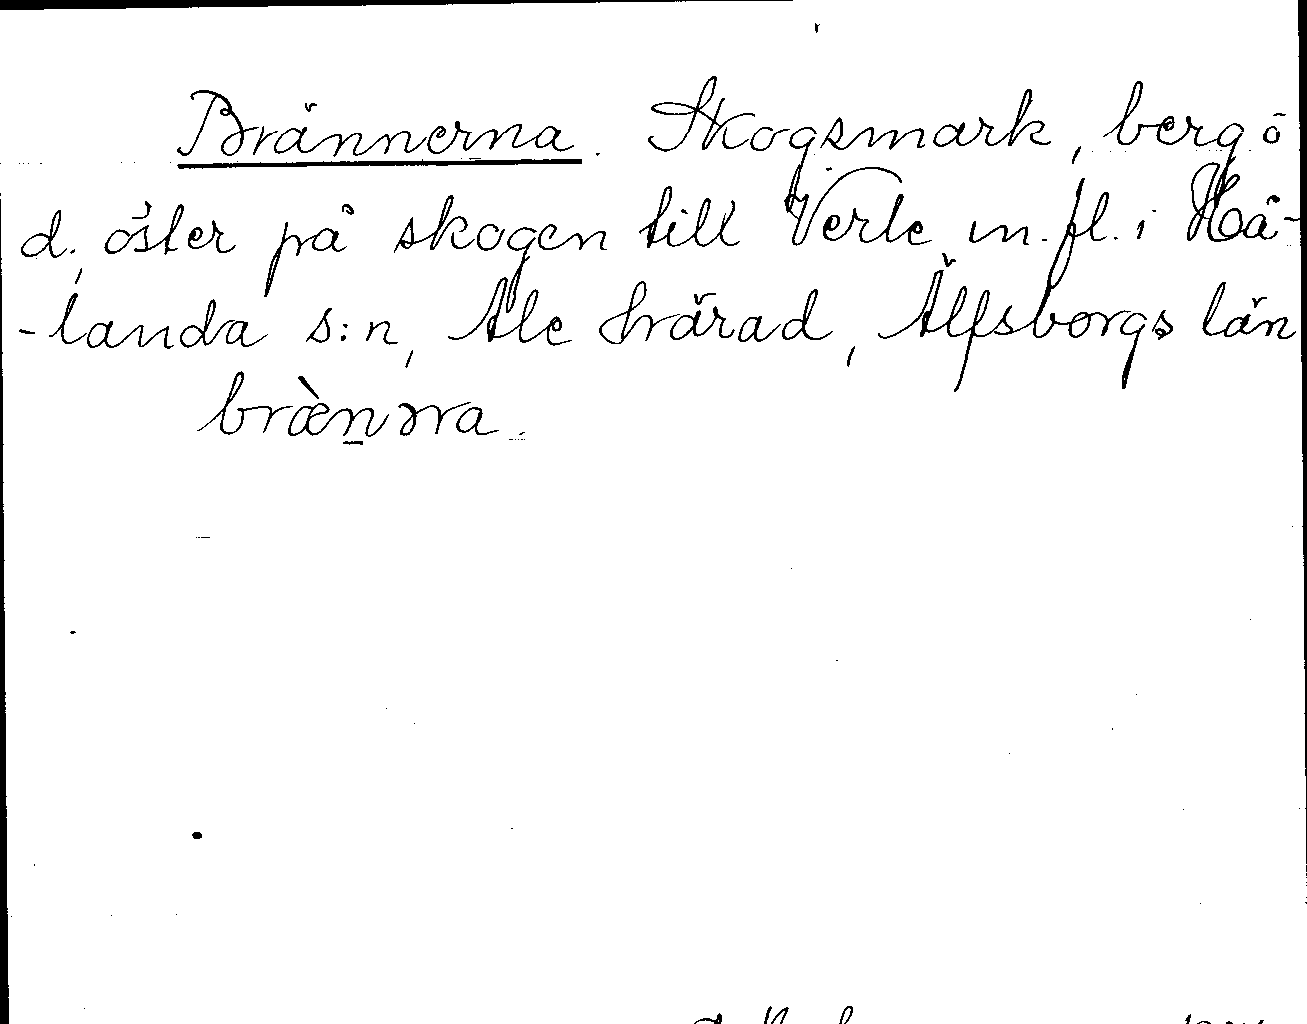 Brännerna. Skogsmark, berg ö
d., öster på skogen till Verle m. fl. i Hå-
-landa s:n, Ale härad, Älfsborgs län
bræ̀n̠ərra.